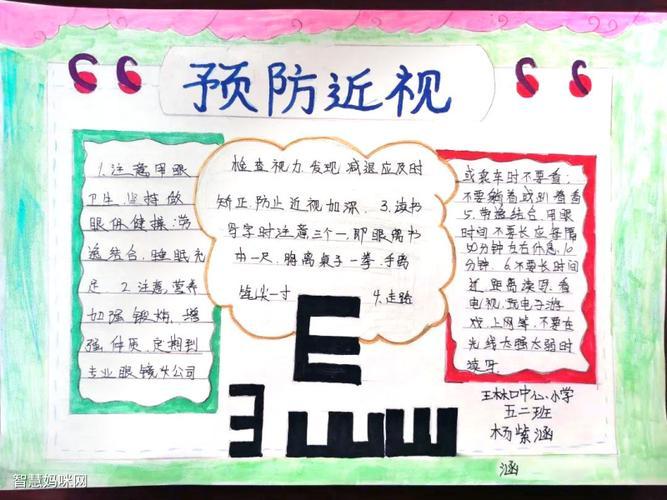 预防近视
1.注意用眼
卫生,坚持做
眼保健操,劳
逸结合,睡眠充
足 2.注意营养
加强锻炼,增
强体质,定期到
专业眼镜公司
检查视力,发现减退应及时
矫正,防止近视加深. 3.读书
写字时注意三个一,即眼离书
本一尺,胸离桌子一拳,手离
笔尖一寸 4.走路
或乘车时不要看;
不要躺着或趴着看
5.劳逸结合,用眼
时间不要长应每隔
50分钟左右休息,10
分钟. 6.不要长时间
近距离读写,看
电视,玩电子游
戏,上网等,不要在
光线太强太弱时
读写
E
王林口中心小学
五二班
杨紫涵
涵
智慧妈咪网